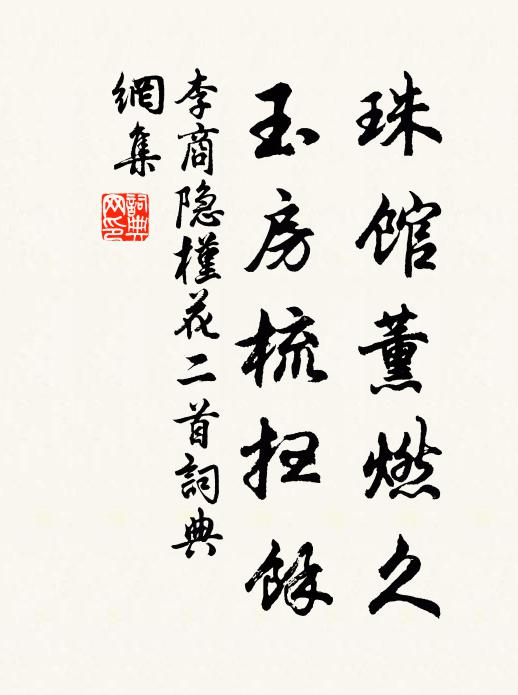 珠馆薰燃久
玉房梳扫餘
李商隐槿花二首詞典
網集
詞典
网印